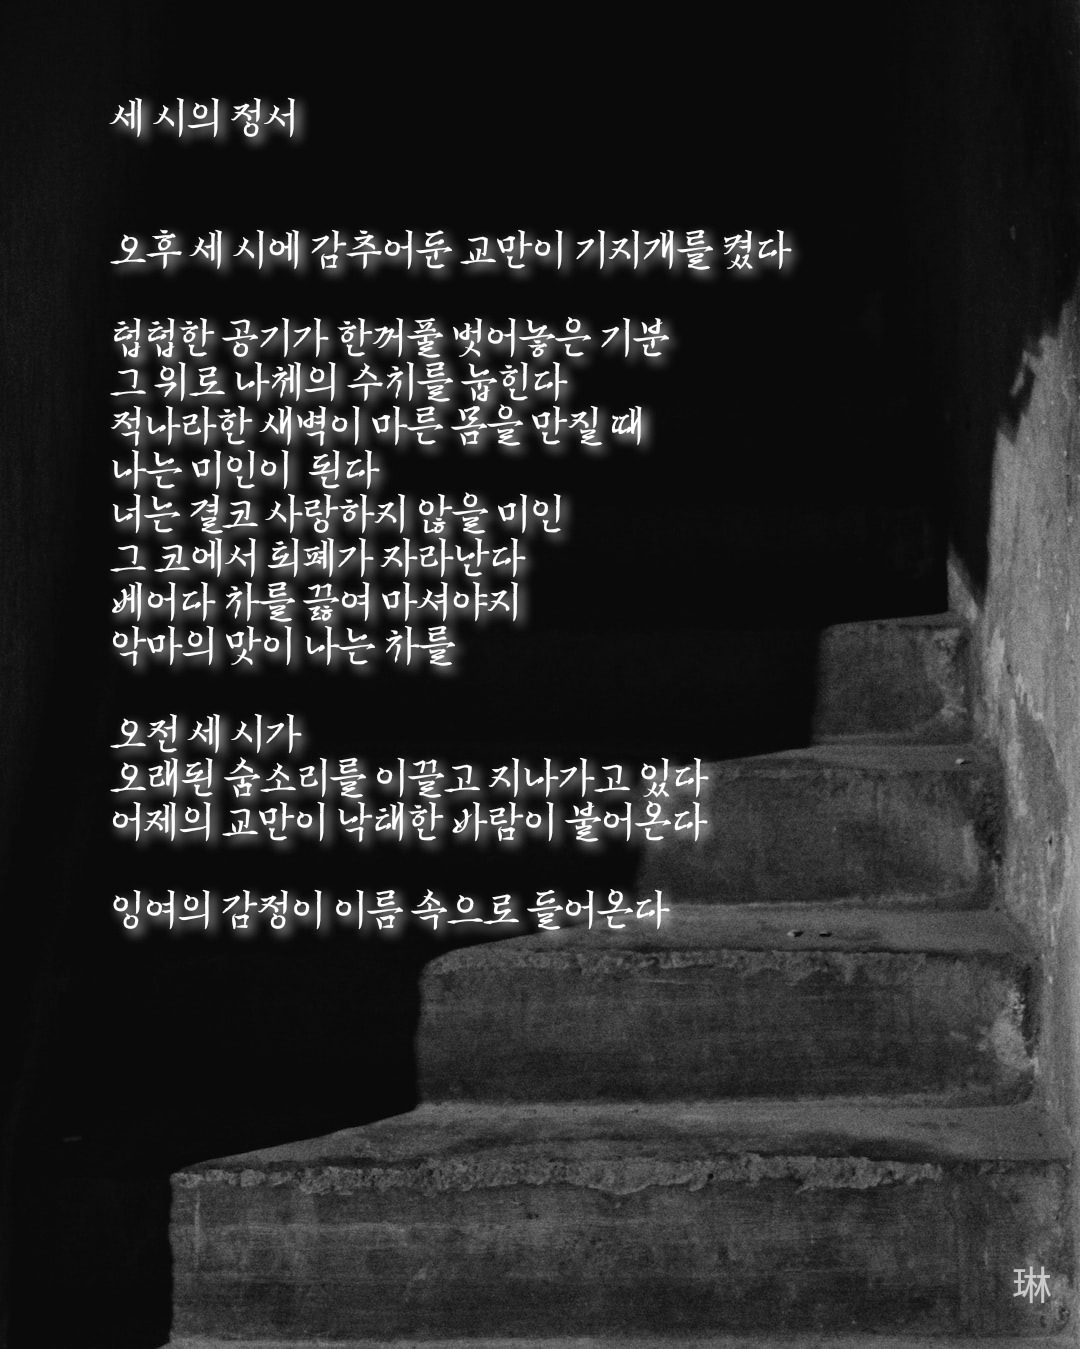 세 시의 정서
오후 세 시에 감추어둔 교만이 기지개를 켰다
텁텁한 공기가 한꺼풀 벗어놓은 기분
그 위로 나체의 수치를 눕힌다
적나라한 새벽이 마른 몸을 만질 때
나는 미인이 된다
너는 결코 사랑하지 않을 미인
그 코에서 퇴폐가 자라난다
베어다 차를 끓여 마셔야지
악마의 맛이 나는 차를
오전 세 시가
오래된 숨소리를 이끌고 지나가고 있다
어제의 교만이 낙태한 바람이 불어온다
잉여의 감정이 이름 속으로 들어온다
琳